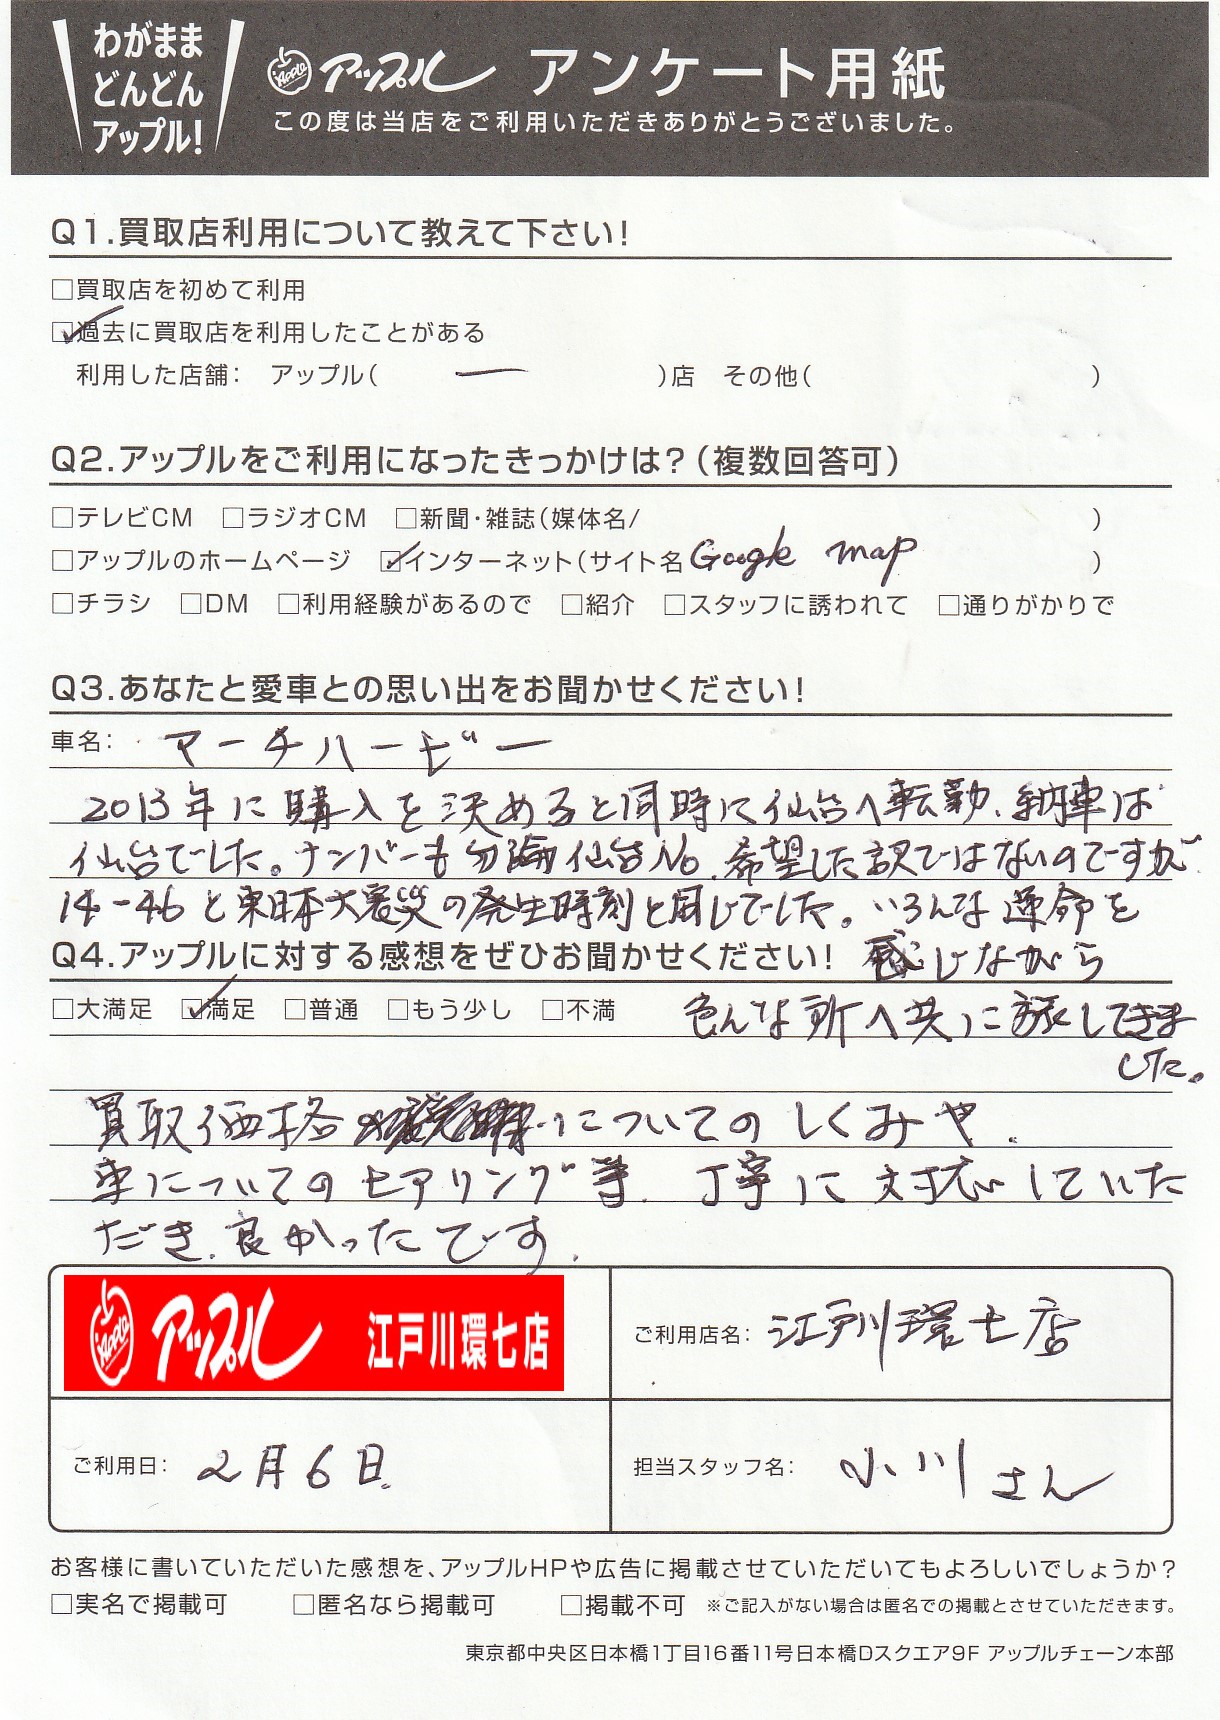 わがまま
どんどん
アップル!
Apple アップル アンケート用紙
この度は当店をご利用いただきありがとうございました。
Q1.買取店利用について教えて下さい!
□買取店を初めて利用
☑過去に買取店を利用したことがある
利用した店舗: アップル( ー )店 その他( )
Q2.アップルをご利用になったきっかけは?(複数回答可)
□テレビCM □ラジオCM □新聞・雑誌(媒体名/ )
□アップルのホームページ ☑インターネット(サイト名 Google map )
□チラシ □DM □利用経験があるので □紹介 □スタッフに誘われて □通りがかりで
Q3.あなたと愛車との思い出をお聞かせください!
車名: マーチハービー
2013年に購入を決めると同時に仙台へ転勤、納車は
仙台でした。ナンバーも勿論仙台No、希望した訳ではないのですが
14-46と東日本大震災の発生時刻と同じでした。いろんな運命を
感じながら
色んな所へ共に旅してきま
した。
Q4.アップルに対する感想をぜひお聞かせください!
□大満足 ☑満足 □普通 □もう少し □不満
買取価格についてのしくみや、
車についてのヒアリング等、丁寧に対応していた
だき、良かったです。
Apple アップル 江戸川環七店
ご利用店名: 江戸川環七店
ご利用日: 2月6日
担当スタッフ名: 小川さん
お客様に書いていただいた感想を、アップルHPや広告に掲載させていただいてもよろしいでしょうか?
□実名で掲載可 □匿名なら掲載可 □掲載不可 ※ご記入がない場合は匿名での掲載とさせていただきます。
東京都中央区日本橋1丁目16番11号日本橋Dスクエア9F アップルチェーン本部